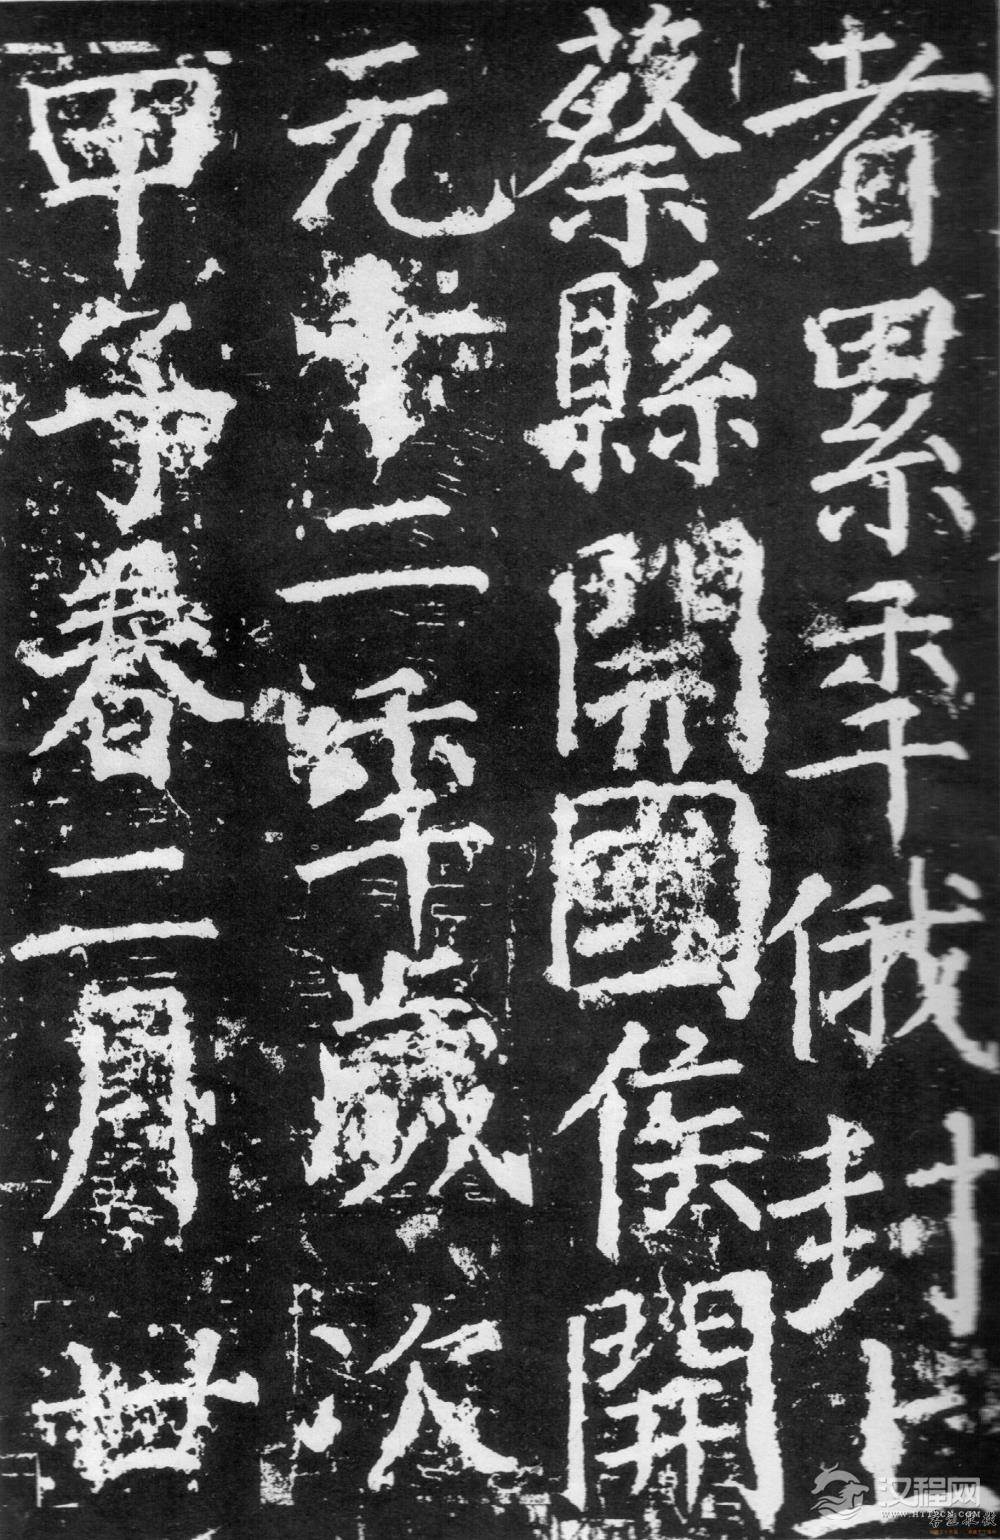 者累年俄封上
蔡縣開國侯開
元十二年歲次
甲子春二月廿
汉程网
WWW.HTTPCN.COM